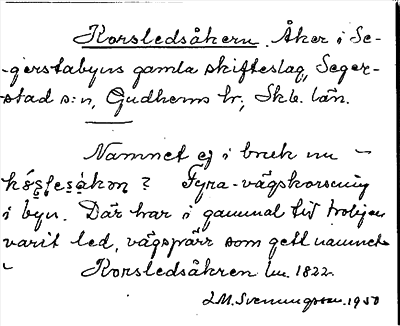 Korsledsåkern. Åker i Se-
-gerstabyns gamla skifteslag, Seger-
stad s:n, Gudhems hr, Skb. län.
Namnet ej i bruk nu –
? Fyra-vägskorsning
i byn. Där har i gammal tid troligen
varit led, vägspärr som gett namnet
Korsledsåkren lm. 1822.
L.M. Svenungsson. 1950